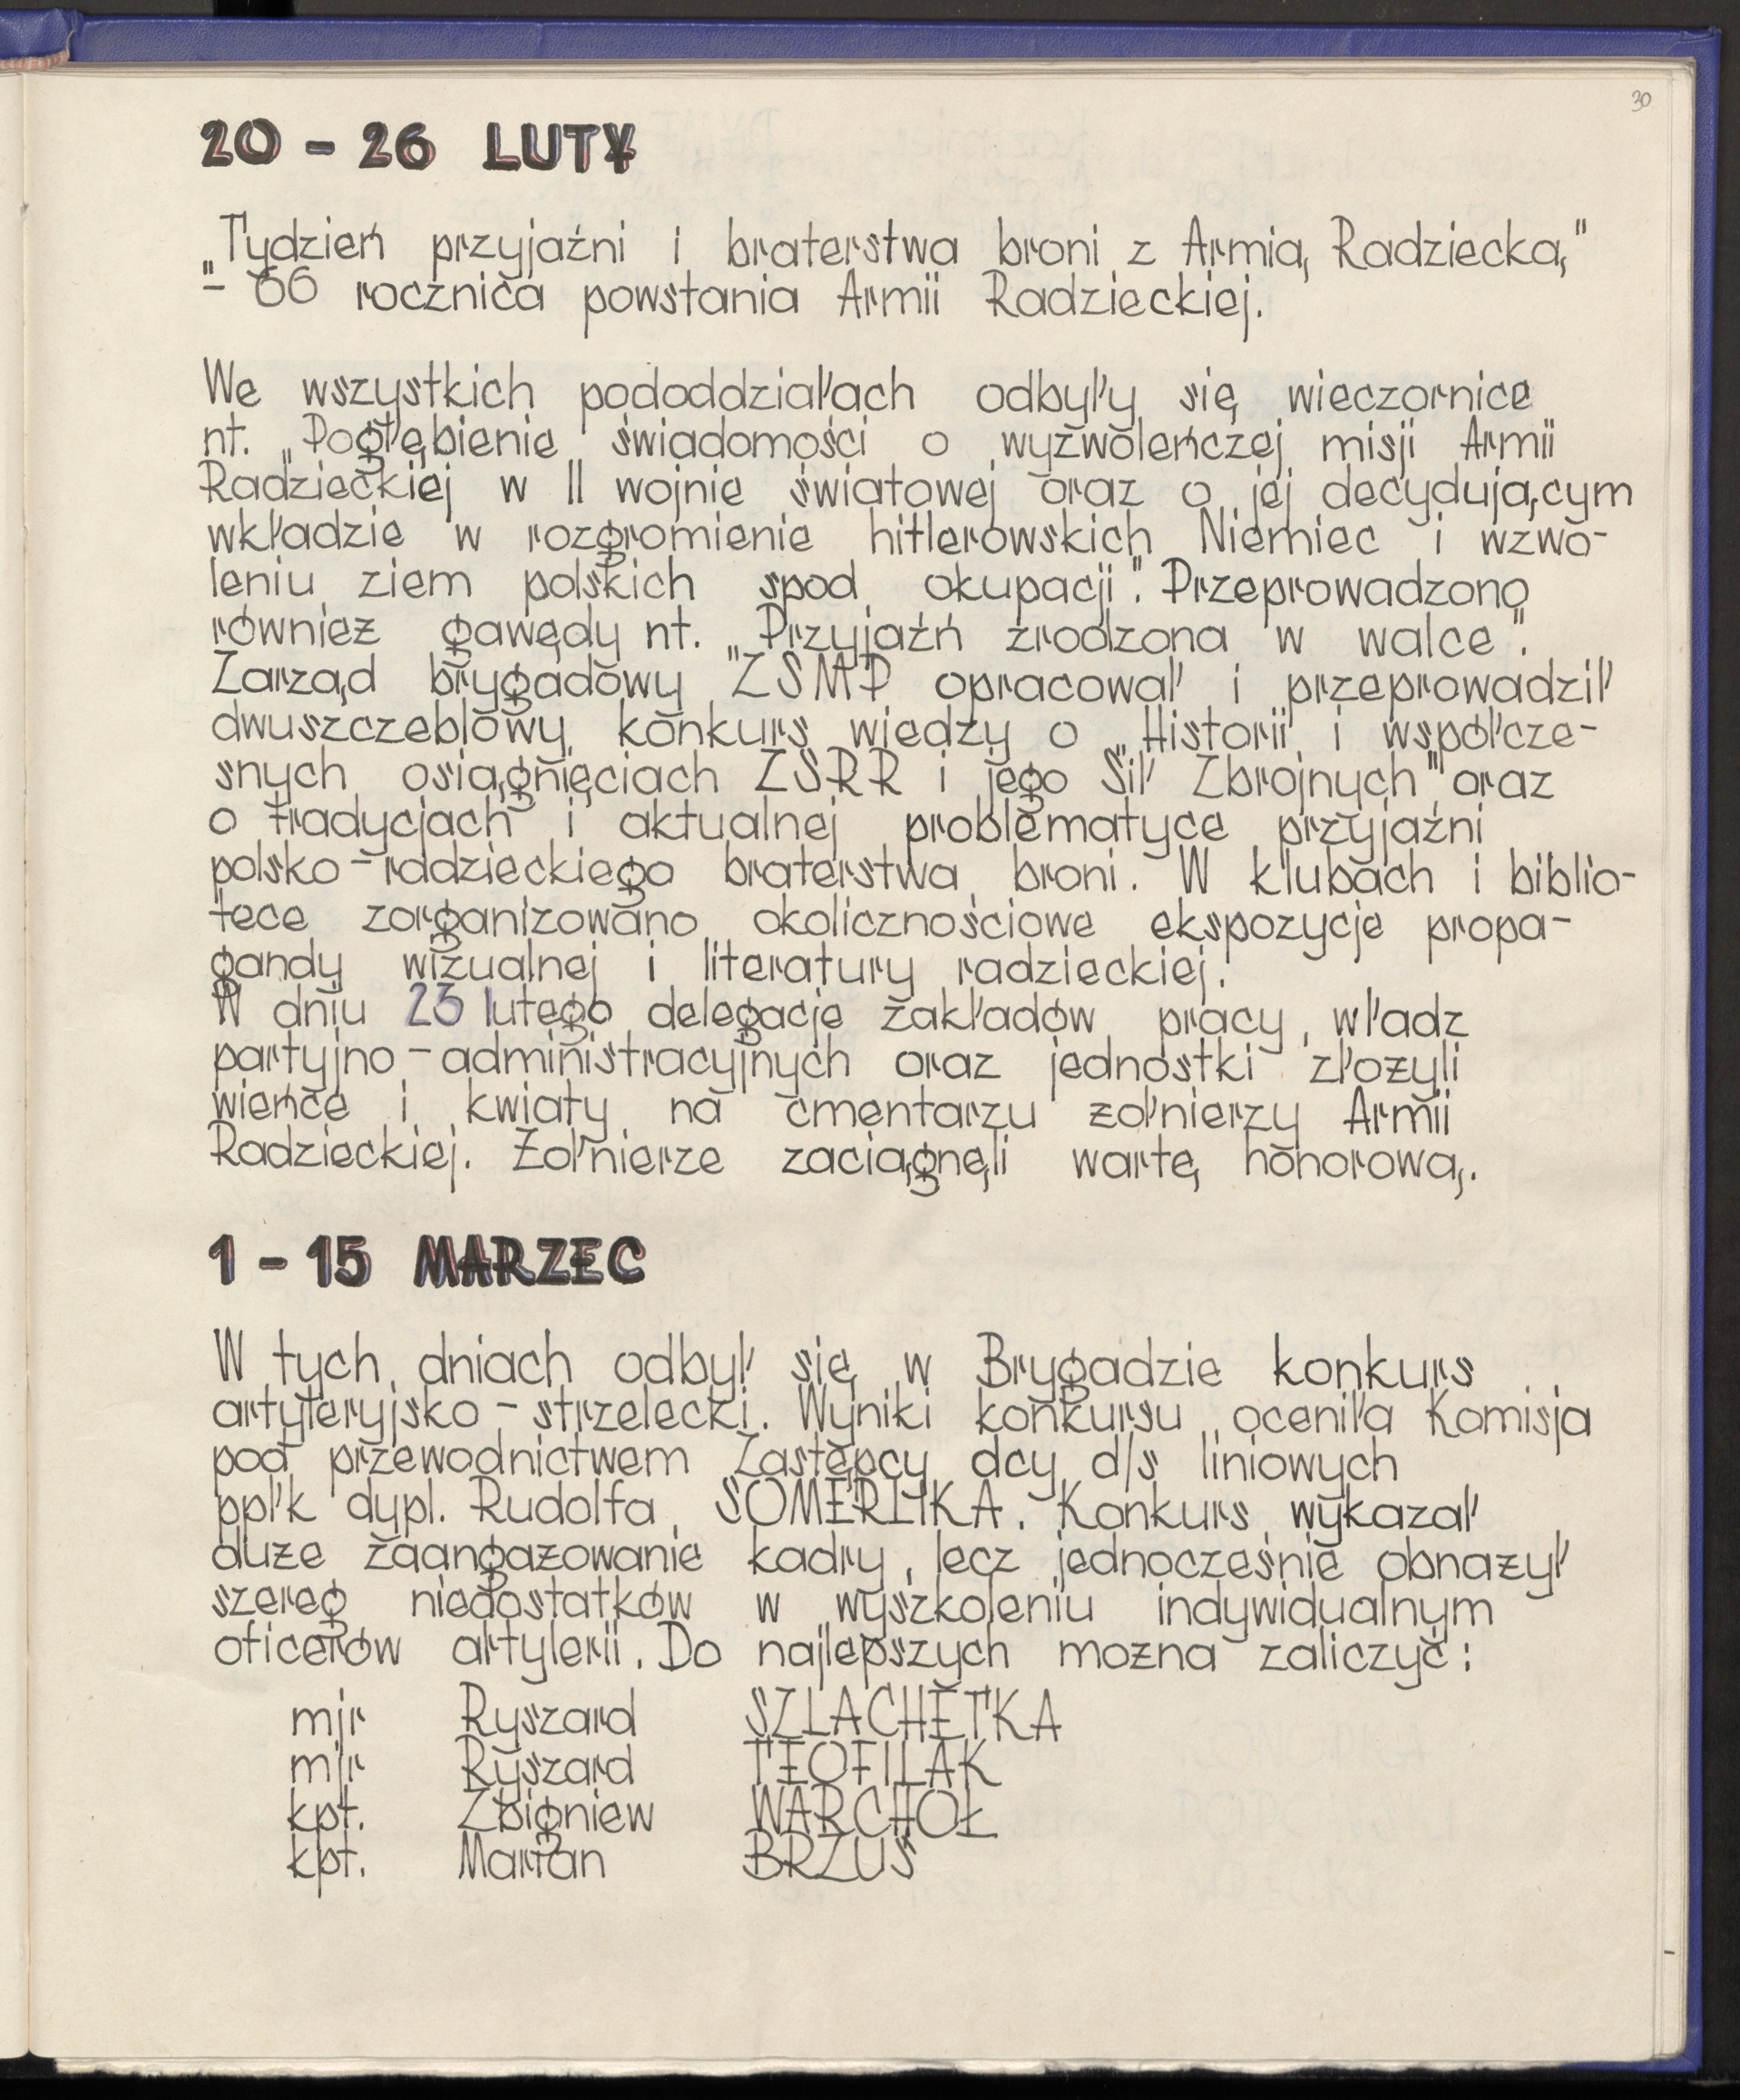 30
20 - 26 LUTY
„Tydzień przyjaźni i braterstwa broni z Armią Radziecką"
- 66 rocznica powstania Armii Radzieckiej.
We wszystkich pododdziałach odbyły się wieczornice
nt. „Pogłębienie świadomości o wyzwoleńczej misji Armii
Radzieckiej w II wojnie światowej oraz o jej decydującym
wkładzie w rozgromienie hitlerowskich Niemiec i wzwo-
leniu ziem polskich spod okupacji". Przeprowadzono
również gawędy nt. „Przyjaźń zrodzona w walce".
Zarząd brygadowy ZSMP opracował i przeprowadził
dwuszczeblowy konkurs wiedzy o „Historii i współcze-
snych osiągnięciach ZSRR i jego Sił Zbrojnych" oraz
o tradycjach i aktualnej problematyce przyjaźni
polsko-radzieckiego braterstwa broni. W klubach i biblio-
tece zorganizowano okolicznościowe ekspozycje propa-
gandy wizualnej i literatury radzieckiej.
W dniu 23 lutego delegacje zakładów pracy, władz
partyjno-administracyjnych oraz jednostki złożyli
wieńce i kwiaty na cmentarzu żołnierzy Armii
Radzieckiej. Żołnierze zaciągnęli wartę honorową.
1 - 15 MARZEC
W tych dniach odbył się w Brygadzie konkurs
artyleryjsko-strzelecki. Wyniki konkursu oceniła Komisja
pod przewodnictwem Zastępcy dcy d/s liniowych
ppłk dypl. Rudolfa SOMERLIKA. Konkurs wykazał
duże zaangażowanie kadry, lecz jednocześnie obnażył
szereg niedostatków w wyszkoleniu indywidualnym
oficerów artylerii. Do najlepszych można zaliczyć:
mjr Ryszard SZLACHETKA
mjr Ryszard TEOFILAK
kpt. Zbigniew WARCHOŁ
kpt. Marian BRZUŚ